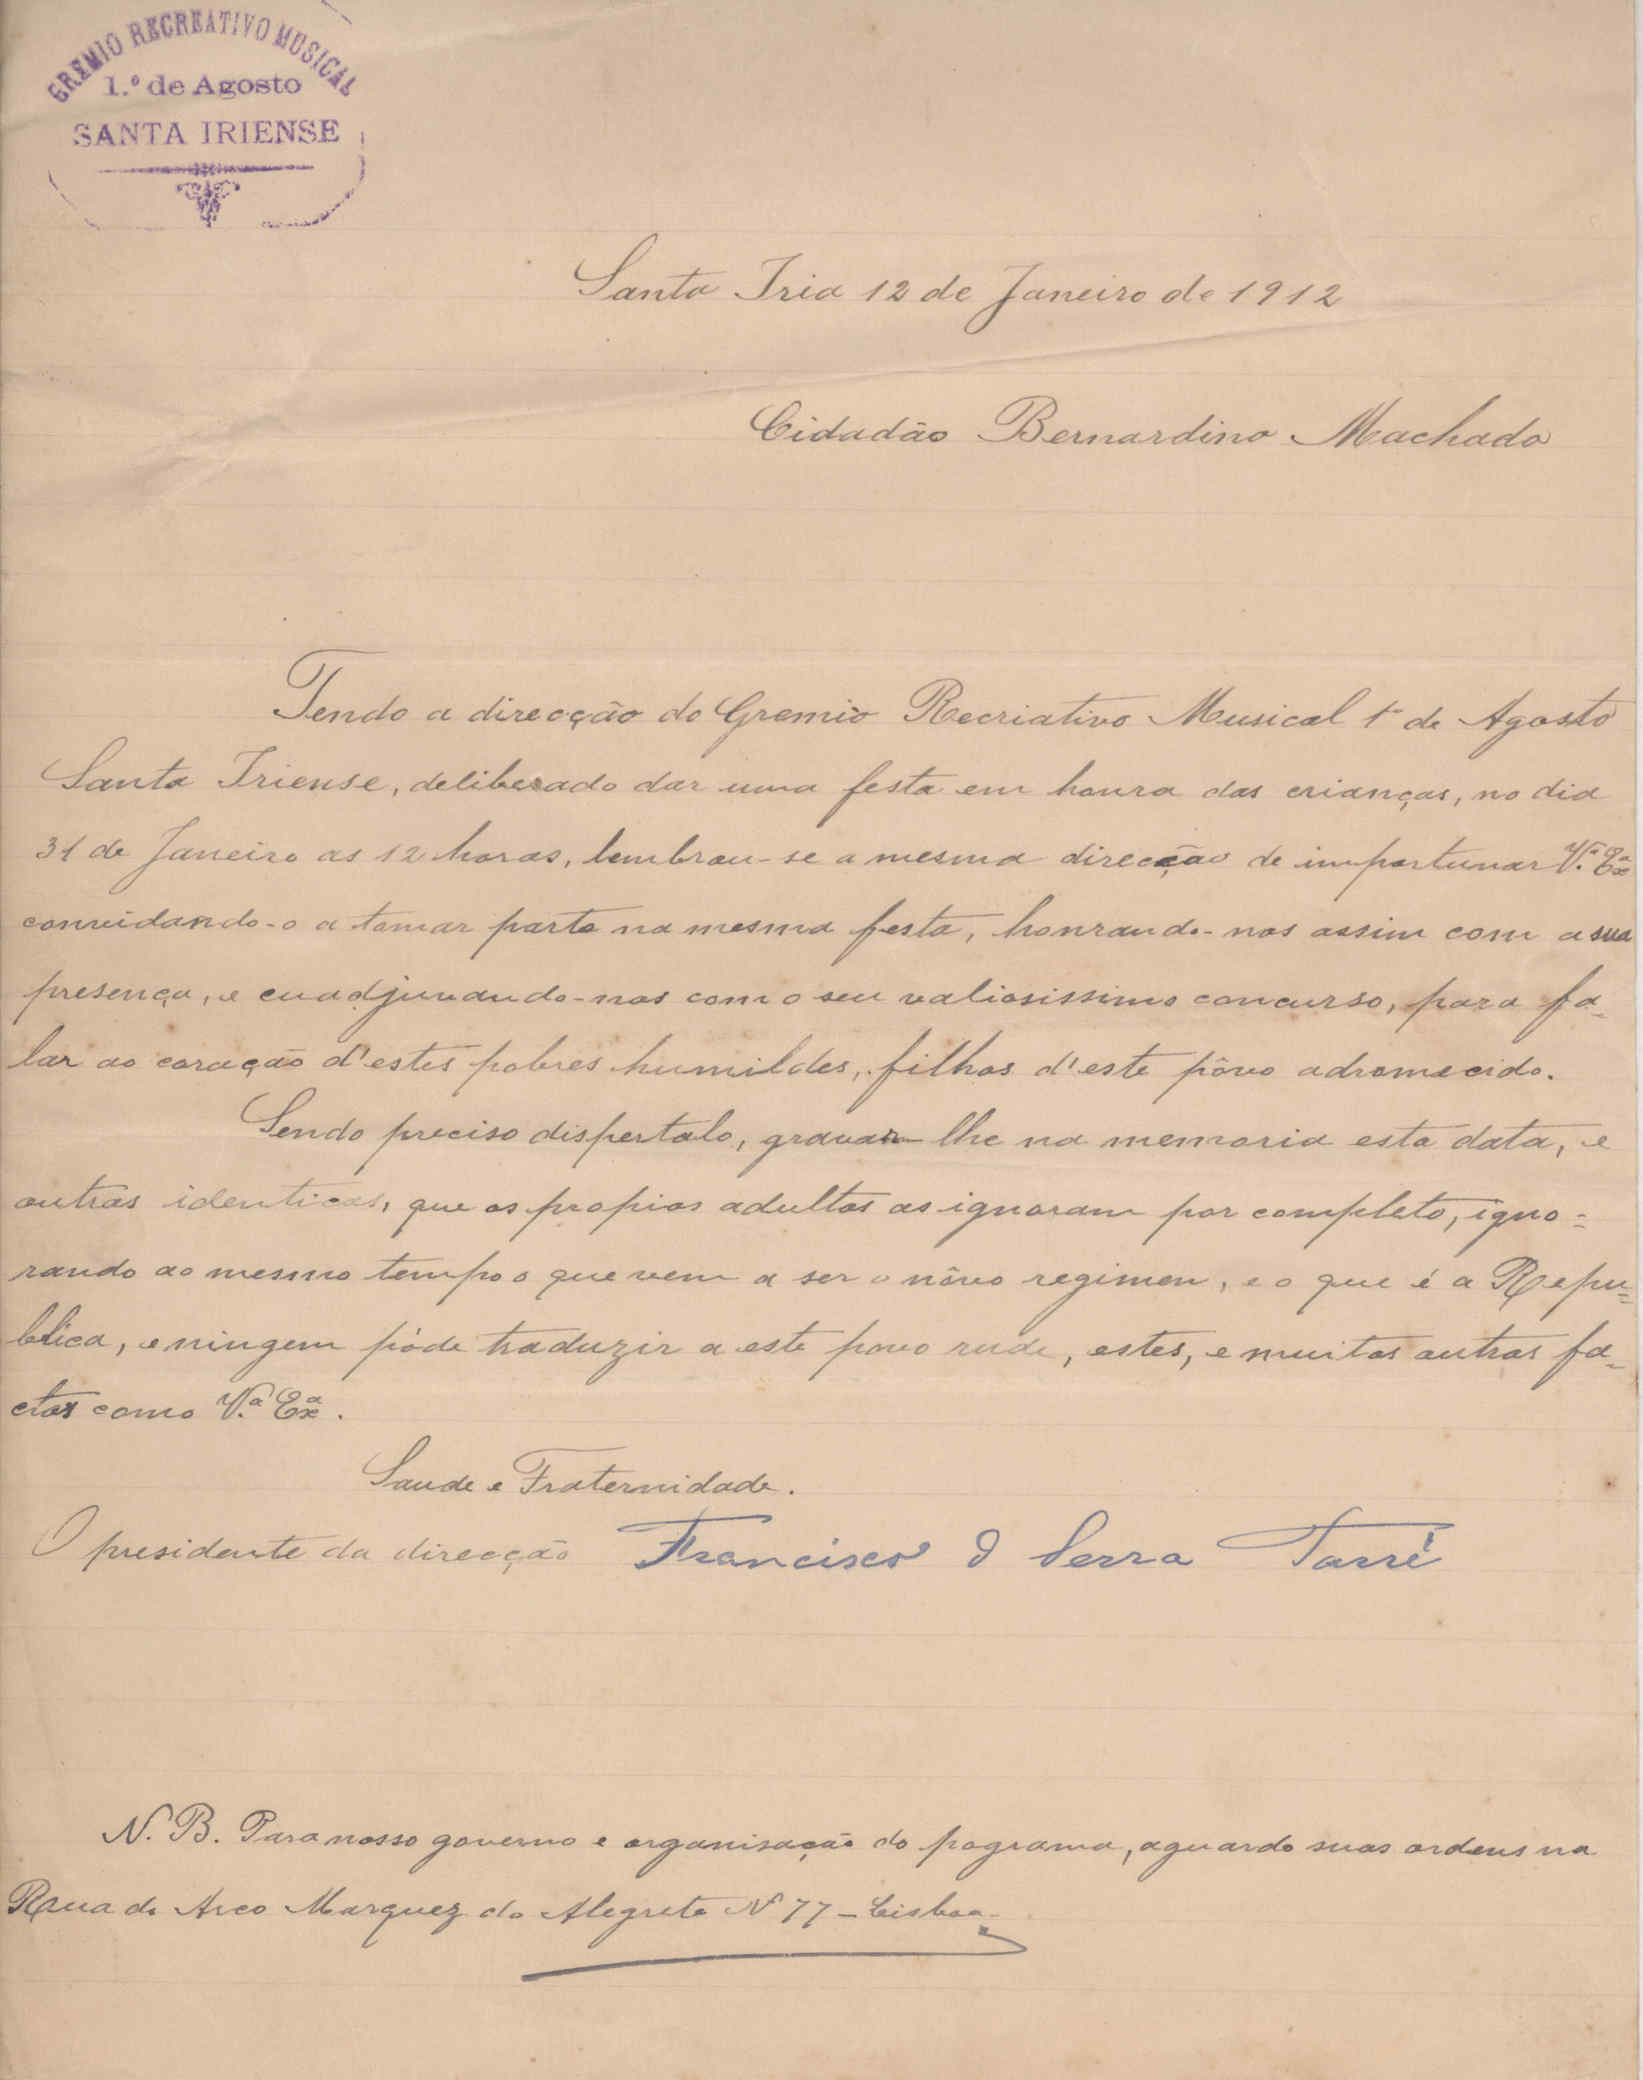 GREMIO RECREATIVO MUSICAL
1.º de Agosto
SANTA IRIENSE
Santa Iria 12 de Janeiro de 1912
Cidadão Bernardino Machado
Tendo a direcção do Gremio Recriativo Musical 1º de Agosto
Santa Iriense, deliberado dar uma festa em honra das crianças, no dia
31 de Janeiro as 12 horas, lembrou-se a mesma direcção de importunar V.ª Exª
convidando-o a tomar parte na mesma festa, honrando-nos assim com a sua
presença, e cuadjuvando-nos com o seu valiosissimo concurso, para fa-
lar ao coração d'estes pobres humildes, filhos d'este pôvo adromecido.
Sendo preciso dispertalo, gravar-lhe na memoria esta data, e
outras identicas, que os propios adultos as ignoram por completo, igno=
rando ao mesmo tempo o que vem a ser o nôvo regimen, e o que é a Repu=
blica, e ningem póde traduzir a este povo rude, estes, e muitos outros fa-
ctos como V.ª Exª.
Saude e Fraternidade.
O presidente da direcção Francisco Serra Tarré
N. B. Para nosso governo e organisação do pograma, aguardo suas ordens na
Rua do Arco Marquez do Alegrete Nº 77 - Lisboa